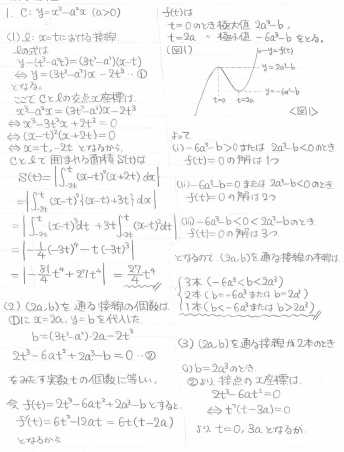 1. C: y=x³-a²x (a>0)
(1) l: x=tにおける接線
lの式は
y-(t³-a²t)=(3t²-a²)(x-t)
⇔ y=(3t²-a²)x-2t³ …①
となる。
ここでCとlの交点x座標は
x³-a²x=(3t²-a²)x-2t³
⇔ x³-3t²x+2t³=0
⇔ (x-t)²(x+2t)=0
⇔ x=t, -2t となるから、
Cとlで囲まれる面積S(t)は
S(t)=|∫_{-2t}^{t}(x-t)²(x+2t)dx|
=|∫_{-2t}^{t}(x-t)²{(x-t)+3t}dx|
=|∫_{-2t}^{t}(x-t)³dt+3t∫_{-2t}^{t}(x-t)²dt|
=|-1/4(-3t)⁴-t(-3t)³|
=|-81/4t⁴+27t⁴|=27/4t⁴
(2) (2a,b)を通る接線の個数は、
①にx=2a, y=bを代入した
b=(3t²-a²)·2a-2t³
2t³-6at²+2a³-b=0 …②
をみたす実数tの個数に等しい。
今 f(t)=2t³-6at²+2a³-bとすると
f'(t)=6t²-12at=6t(t-2a)
となるから
f(t)は
t=0のとき極大値 2a³-b,
t=2a 〃 極小値 -6a³-bをとる。
(図1)
y=f(t)
y=2a³-b
y=-6a³-b
t=0
t=2a
<図1>
よって
(i) -6a³-b>0または2a³-b<0のとき
f(t)=0の解は1つ
(ii) -6a³-b=0または2a³-b=0のとき
f(t)=0の解は2つ
(iii) -6a³-b<0<2a³-bのとき
f(t)=0の解は3つ
となるので、(2a,b)を通る接線の本数は、
3本 (-6a³<b<2a³)
2本 (b=-6a³またはb=2a³)
1本 (b<-6a³またはb>2a³)
(3) (2a,b)を通る接線が2本のとき
(i) b=2a³のとき.
②より、接点のx座標は、
2t³-6at²=0
⇔ t²(t-3a)=0
より t=0, 3aとなるが、